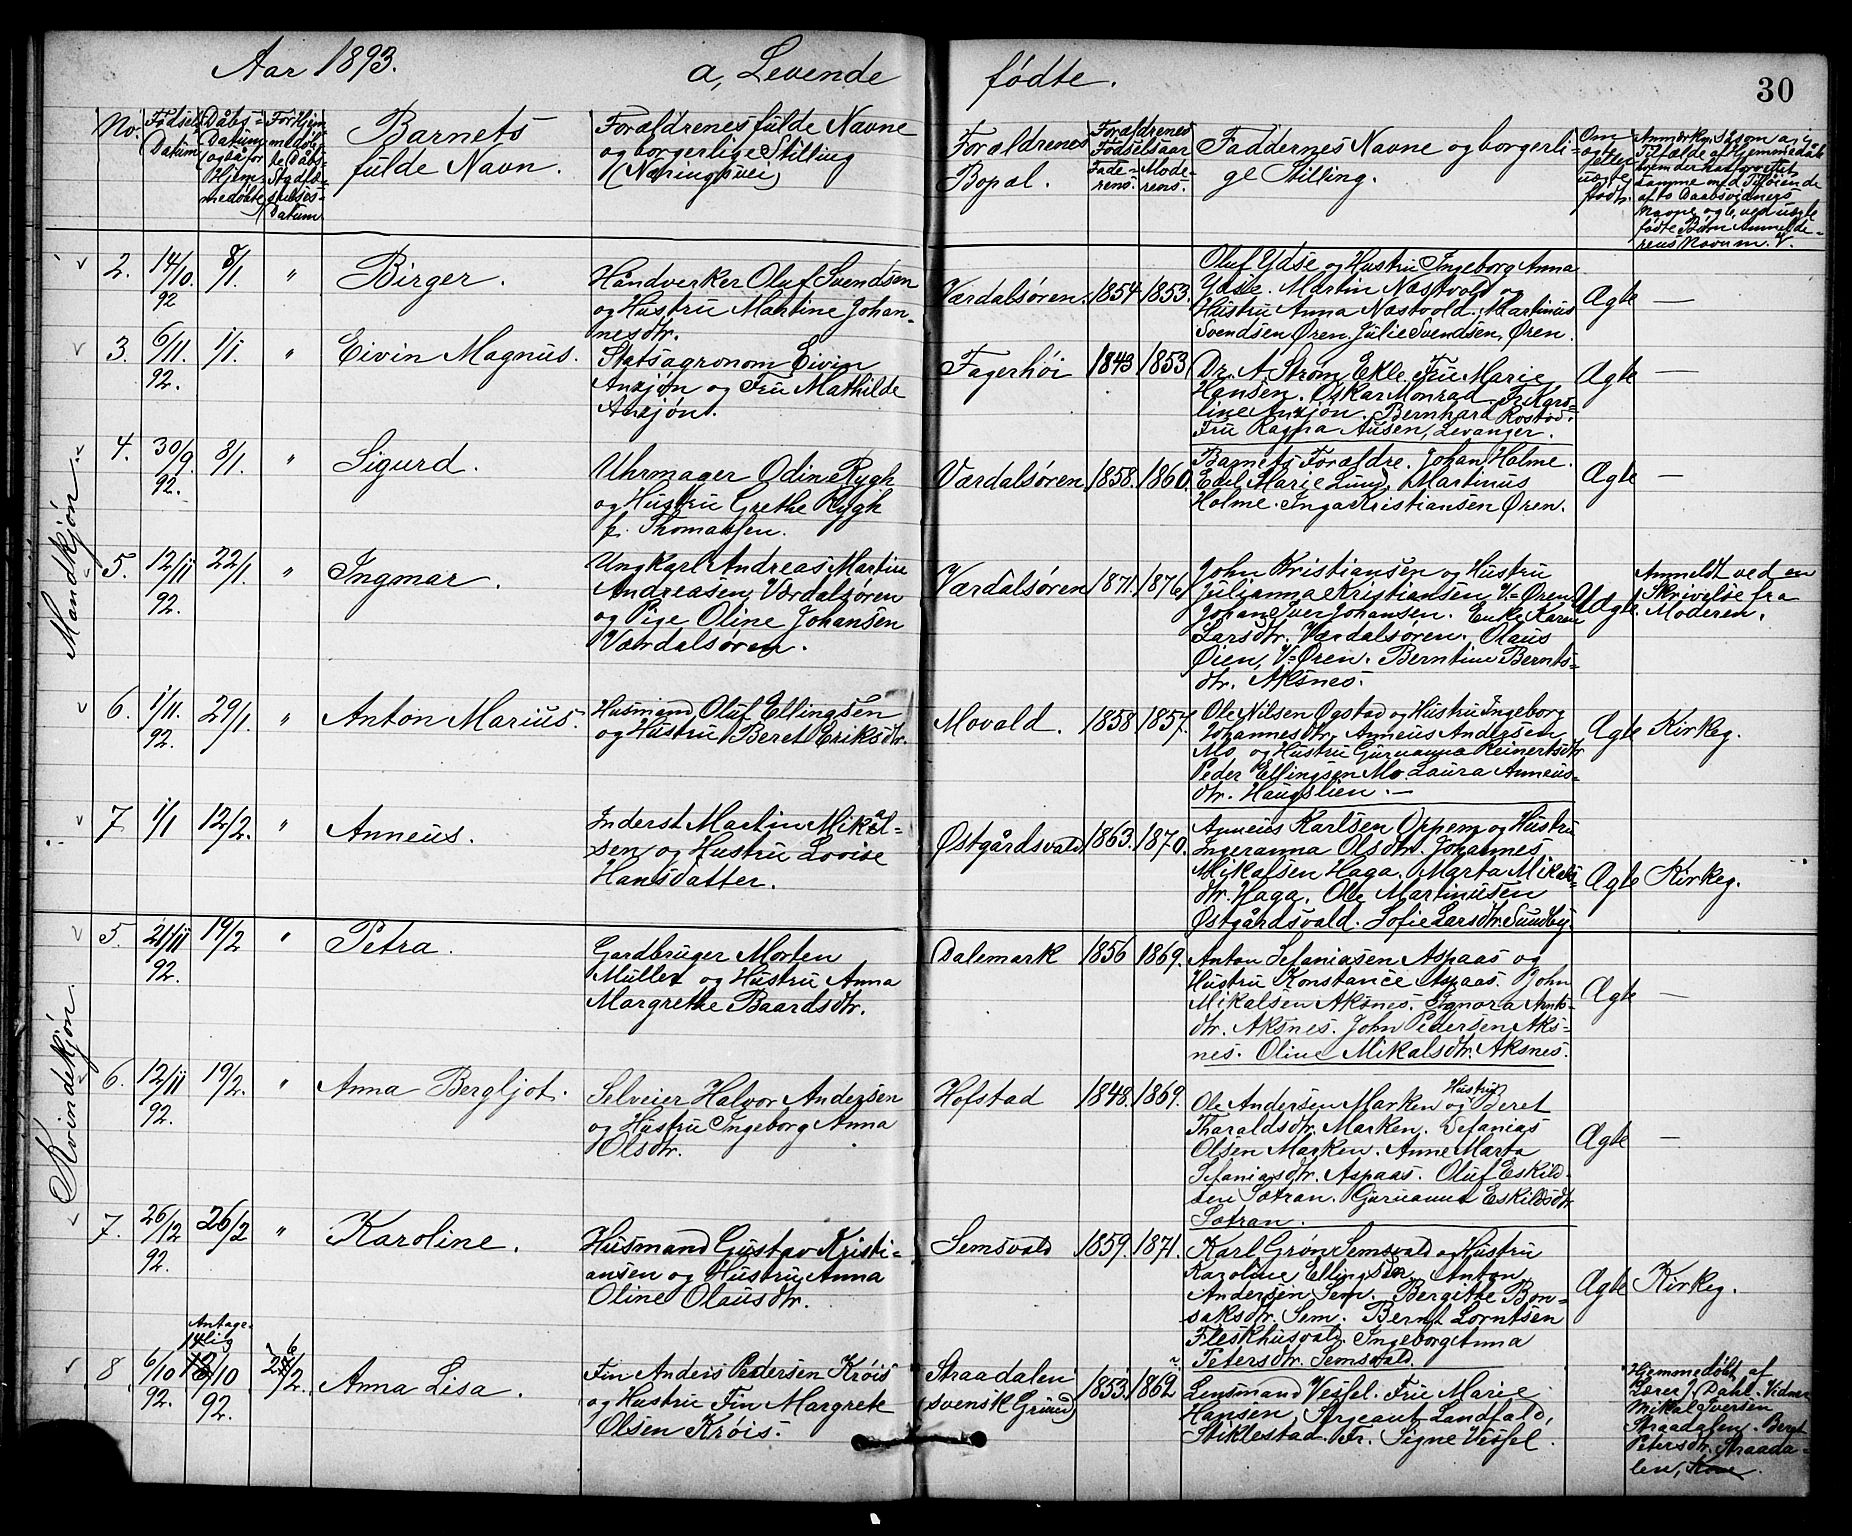 Aar 1893.
a, Levende
fødte.
30
No.
Fødsels
Datum
Dåbs-
Datum
og då for
Hjem-
medøbte
For Hjem-
medøb-
te Dåbs-
Stadfæ-
stelses-
Datum
Barnets
fulde Navn.
Forældrenes fulde Navne
og borgerlige Stilling
(Næringsvei)
Forældrenes
Bopæl.
Forældrenes
Fødselsaar
Fade-
rens.
Mode-
rens.
Faddernes Navne og borgerli-
ge Stilling.
Om
ægte
eller
uægte
født.
Mandkjøn.
2.
14/10.
92
8/1.
"
Birger.
Håndverker Oluf Svendsen
og Hustru Martine Johan-
nesdtr.
Værdalsøren.
1854
1853.
Oluf Ydse og Hustru Ingeborg Anna
Ydse. Martin Næstvold og
Hustru Anna Næstvold. Martinus
Svendsen Øren, Julie Svendsen, Øren.
Ægte
—
3.
6/11.
92.
1/1.
"
Eivin Magnus.
Statsagronom Eivin
Anzjøn og Fru Mathilde
Anzjøn.
Fagerhøi
1843
1853
Dr. A Strøm, Ekle. Fru Marie
Hansen. Oskar Monrad.
line Anzjøn. Bernhard Rostad.
Fru Ragna Ausen, Levanger.
Ægte
—
4.
30/9
92.
8/1.
"
Sigurd.
Uhrmager Odin Rygh
og Hustru Grethe Rygh
f. Thomassen.
Værdalsøren
1858.
1860.
Barnets Forældre. Johan Holme.
Edel Marie Lund, Martinus
Holme. Inga Kristiansen Øren.
Ægte
—
5.
12/11
92.
22/1.
"
Ingmar.
Ungkarl Andreas Martin
Andreasen, Værdalsøren
og Pige Oline Johansen
Værdalsøren.
Værdalsøren
1871.
1876
John Kristiansen og Hustru
Julianna Kristiansen V=Øren
Johan Iver Johansen. Enke Karen
Larsdtr. Værdalsøren. Olaus
Øien, V=Øren. Berntine Bernts-
dtr. Aksnes.
Uægte
Anmeldt ved en
Skrivelse fra
Moderen.
6.
1/11.
92.
29/1.
"
Anton Marius.
Husmand Oluf Ellingsen
og Hustru Beret Eriksdtr.
Movald.
1858
1857.
Ole Nilsen Øgstad og Hustru Ingeborg
Johannesdtr, Anneus Andersen
Mo og Hustru Guruanna Reinertsdtr
Peder Ellingsen Mo. Laura Anneus-
dtr. Haugslien. —
Ægte
Kirkeg.
7
1/1
12/2.
"
Anneus.
Inderst Martin Mikal-
sen og Hustru Lovise
Hansdatter.
Østgårdsvald
1863.
1870.
Anneus Karlsen Oppem og Hustru
Ingeranna Olsdtr. Johannes
Mikalsen Haga. Marta Mikals-
dtr. Haga. Ole Martinusen
Østgårdsvald. Sofie Larsdtr. Sundby.
Ægte
Kirkeg.
Kvindekjøn.
5.
21/11
92.
19/2
"
Petra.
Gardbruger Morten
Müller og Hustru Anna
Margrethe Baardsdtr.
Dalemark
1856
1869.
Anton Sefaniasen Aspaas og
Hustru Konstance Aspaas. John
Mikalsen Aksnes. Ignora Arnts-
dtr. Aksnes. John Pedersen Aks-
nes. Oline Mikalsdtr. Aksnes.
Ægte
—
6.
12/11
92.
19/2.
"
Anna Bergljot.
Selveier Halvor Andersen
og Hustru Ingeborg Anna
Olsdtr.
Hofstad
1848.
1869.
Ole Andersen Marken og Hustru Beret
Tharaldsdtr. Marken. Sefanias
Olsen Marken. Anne Marta
Sefaniasdtr. Aspaas. Oluf Eskild-
sen Sætran. Guruanna Eskildsdtr
Sætran.
Ægte
—
7.
26/12
92.
26/2
"
Karoline.
Husmand Gustav Kristi-
ansen og Hustru Anna
Oline Olausdtr.
Semsvald
1859.
1871.
Karl Grøn Semsvald og Hustru
Karoline Ellingsdtr. Anton
Andersen Sem. Bergitte Bon-
saksdtr. Sem. Bernt Lorntsen
Fleskhusvald. Ingeborg Anna
Petersdtr. Semsvald.
Ægte
Kirkeg.
8
6/10
92.
Antage-
lig
14
/10
92.
26/2.
Anna Lisa.
Fin Anders Pedersen Krøis
og Hustru Fin Margrete
Olsen Krøis.
Straadalen
(svensk Grund)
1853.
1862
Lensmand Vessel. Fru Marie
Hansen, Sergeant Landfald,
Stiklestad. Fr. Signe Vessel.
Hjemmedøbt af
Lærer J. Dahl. Vidner
Mikal Iversen
Straadalen. Beret
Petersdtr. Straada-
len,